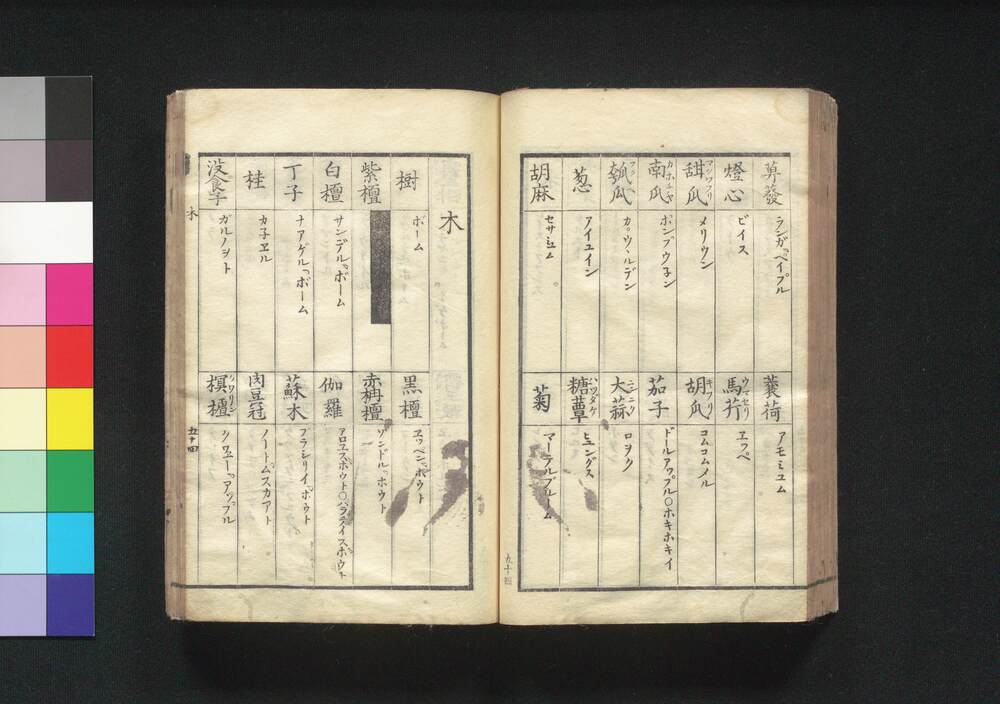 蓽發
ランガ ペイプル
蘘荷
アモミユム
燈心
ビイス
馬芹 ウマゼリ
ヱツペ
甜瓜
メリウン
胡瓜 キウリ
コムコムメル
南瓜
ポンプウ子ン
茄子
ドールアツプル〇ホキホキイ
瓠瓜
カウウルデン
大蒜 ニンニク
ロヲク
葱
アイユイン
糖蕈 ハツタケ
ヒュングス
胡麻
セサミユム
菊
マーテルブルーム
五十四
木
樹
ボーム
黒檀
ヱツベンホウト
紫檀
赤栴檀
ソンドルホウト
白檀
サンデルボーム
伽羅
アロエスホウト〇パラデイスホウト
丁子
ナアゲルボーム
蘇木
ブラシリイホウト
桂
カ子ヱル
肉豆冠
ノートムスカアト
没食子
ガルノヲト
榠樝 クワリン
クワエーアツプル
木
五十四